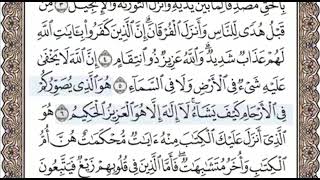 بِٱلْحَقِّ مُصَدِّقًا لِّمَا بَيْنَ يَدَيْهِ وَأَنزَلَ ٱلتَّوْرَىٰةَ وَٱلْإِنجِيلَ ٣ مِن
قَبْلُ هُدًى لِّلنَّاسِ وَأَنزَلَ ٱلْفُرْقَانَ إِنَّ ٱلَّذِينَ كَفَرُوا۟ بِـَٔايَٰتِ ٱللَّهِ
لَهُمْ عَذَابٌ شَدِيدٌ وَٱللَّهُ عَزِيزٌ ذُو ٱنتِقَامٍ ٤ إِنَّ ٱللَّهَ لَا يَخْفَىٰ
عَلَيْهِ شَىْءٌ فِى ٱلْأَرْضِ وَلَا فِى ٱلسَّمَآءِ ٥ هُوَ ٱلَّذِى يُصَوِّرُكُمْ
فِى ٱلْأَرْحَامِ كَيْفَ يَشَآءُ لَآ إِلَٰهَ إِلَّا هُوَ ٱلْعَزِيزُ ٱلْحَكِيمُ ٦ هُوَ
ٱلَّذِىٓ أَنزَلَ عَلَيْكَ ٱلْكِتَٰبَ مِنْهُ ءَايَٰتٌ مُّحْكَمَٰتٌ هُنَّ أُمُّ
ٱلْكِتَٰبِ وَأُخَرُ مُتَشَٰبِهَٰتٌ فَأَمَّا ٱلَّذِينَ فِى قُلُوبِهِمْ زَيْغٌ فَيَتَّبِعُونَ